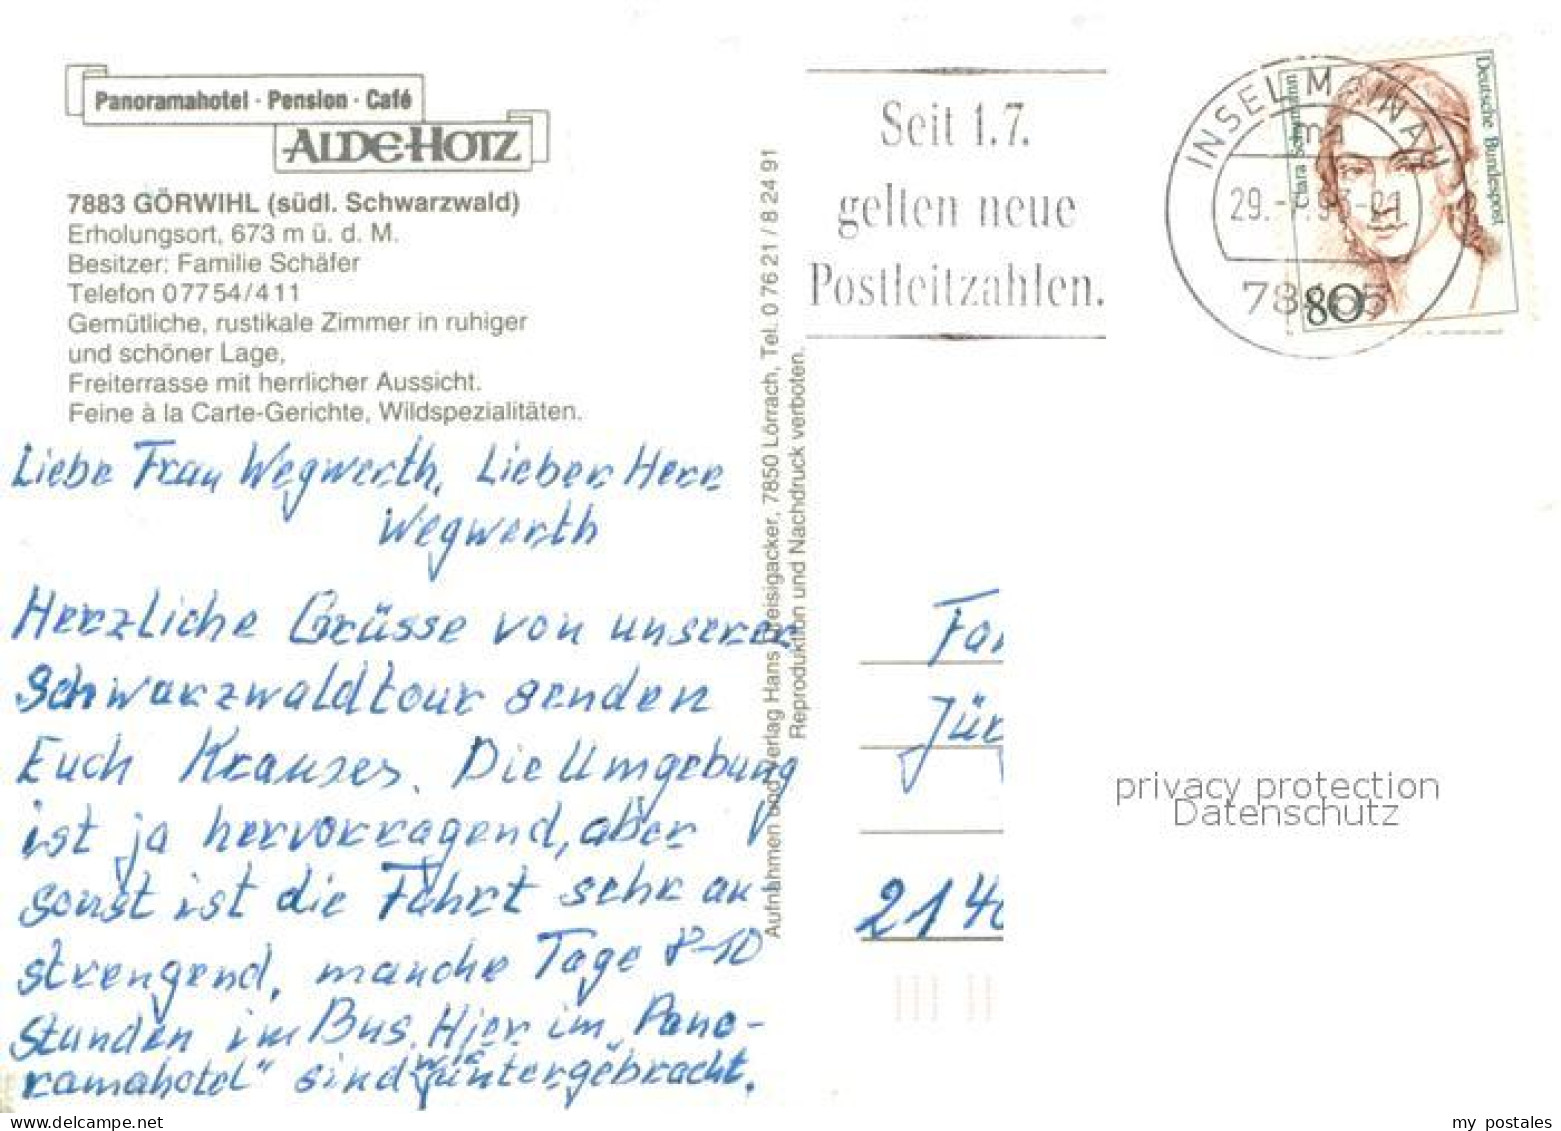 Panoramahotel · Pension · Café
ALDE-HOTZ
7883 GÖRWIHL (südl. Schwarzwald)
Erholungsort, 673 m ü. d. M.
Besitzer: Familie Schäfer
Telefon 0 77 54 / 4 11
Gemütliche, rustikale Zimmer in ruhiger
und schöner Lage,
Freiterrasse mit herrlicher Aussicht.
Feine à la Carte-Gerichte, Wildspezialitäten.
Liebe Frau Wegwerth, Lieber Herr
Wegwerth
Herzliche Grüsse von unserer
Schwarzwaldtour senden
Euch Krauses. Die Umgebung
ist ja hervorragend, aber
sonst ist die Fahrt sehr an
strengend, manche Tage 8-10
Stunden im Bus. Hier im „Pano-
ramahotel" sind wir untergebracht.
Aufnahmen und Verlag Hans Dreisigacker, 7850 Lörrach, Tel. 0 76 21 / 8 24 91
Reproduktion und Nachdruck verboten.
Seit 1.7.
gelten neue
Postleitzahlen.
INSEL MAINAU
ma
29. -7.93-01
78465
Clara Schumann
Deutsche Bundespost
80
Fam
Jür
2140
privacy protection
Datenschutz
my postales